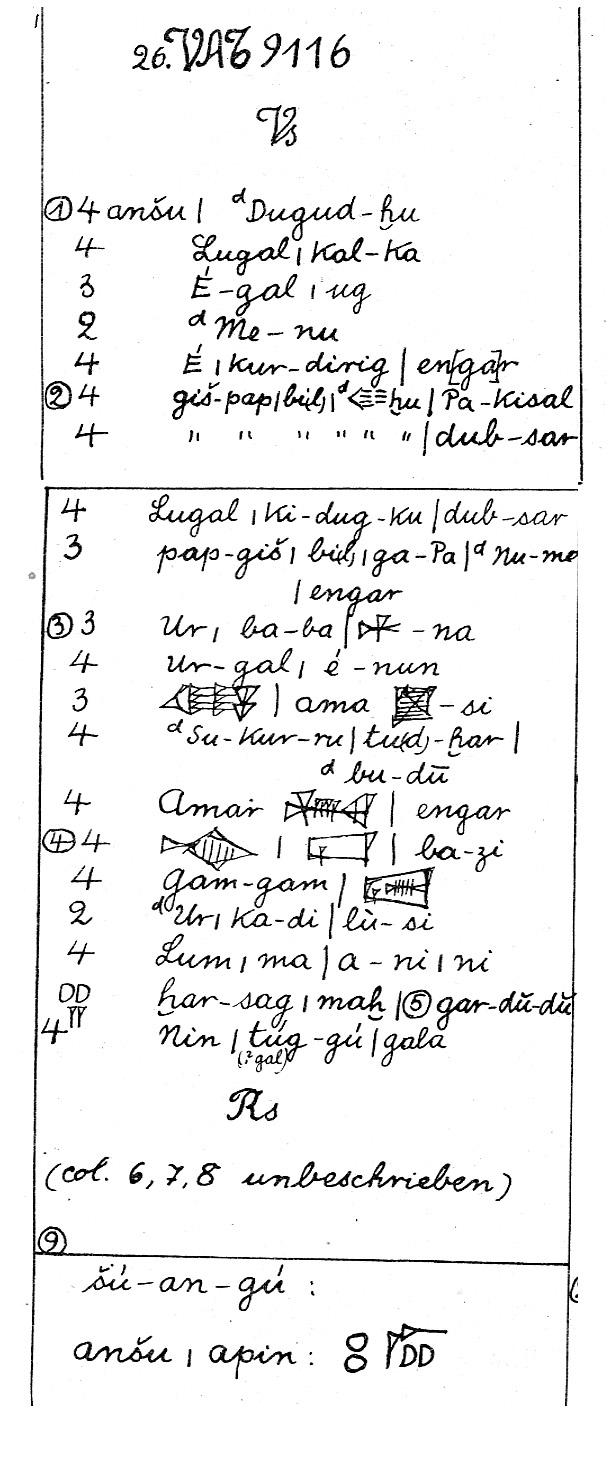 26. VAT 9116
Vs
① 4 anšu | ᵈDugud-ḫu
4 Lugal | Kal-Ka
3 É-gal | ug
2 ᵈMe-nu
4 É | kur-dirig | en[ga]r
② 4 giš-pap | bil | ᵈ ḫu | Pa-Kisal
4 " " " " " " | dub-sar
4 Lugal | Ki-dug-ku | dub-sar
3 pap-giš | bil | ga-Pa | ᵈNu-me
| engar
③ 3 Ur | ba-ba | -na
4 Ur-gal | é-nun
3 | ama -si
4 ᵈSu-Kur-ru | tu(d)-ḫar |
ᵈbu-dū
4 Amar | engar
④ 4 | | ba-zi
4 gam-gam |
2 ᵈUr | Ka-di | lù-si
4 Lum | ma | a-ni | ni
DD ḫar-sag | maḫ | ⑤ gar-dŭ-dŭ
4 Nin | túg-gú | gala
(:²gal)
Rs
(col. 6, 7, 8 unbeschrieben)
⑨
šú-an-gú :
anšu | apin : 8 DD